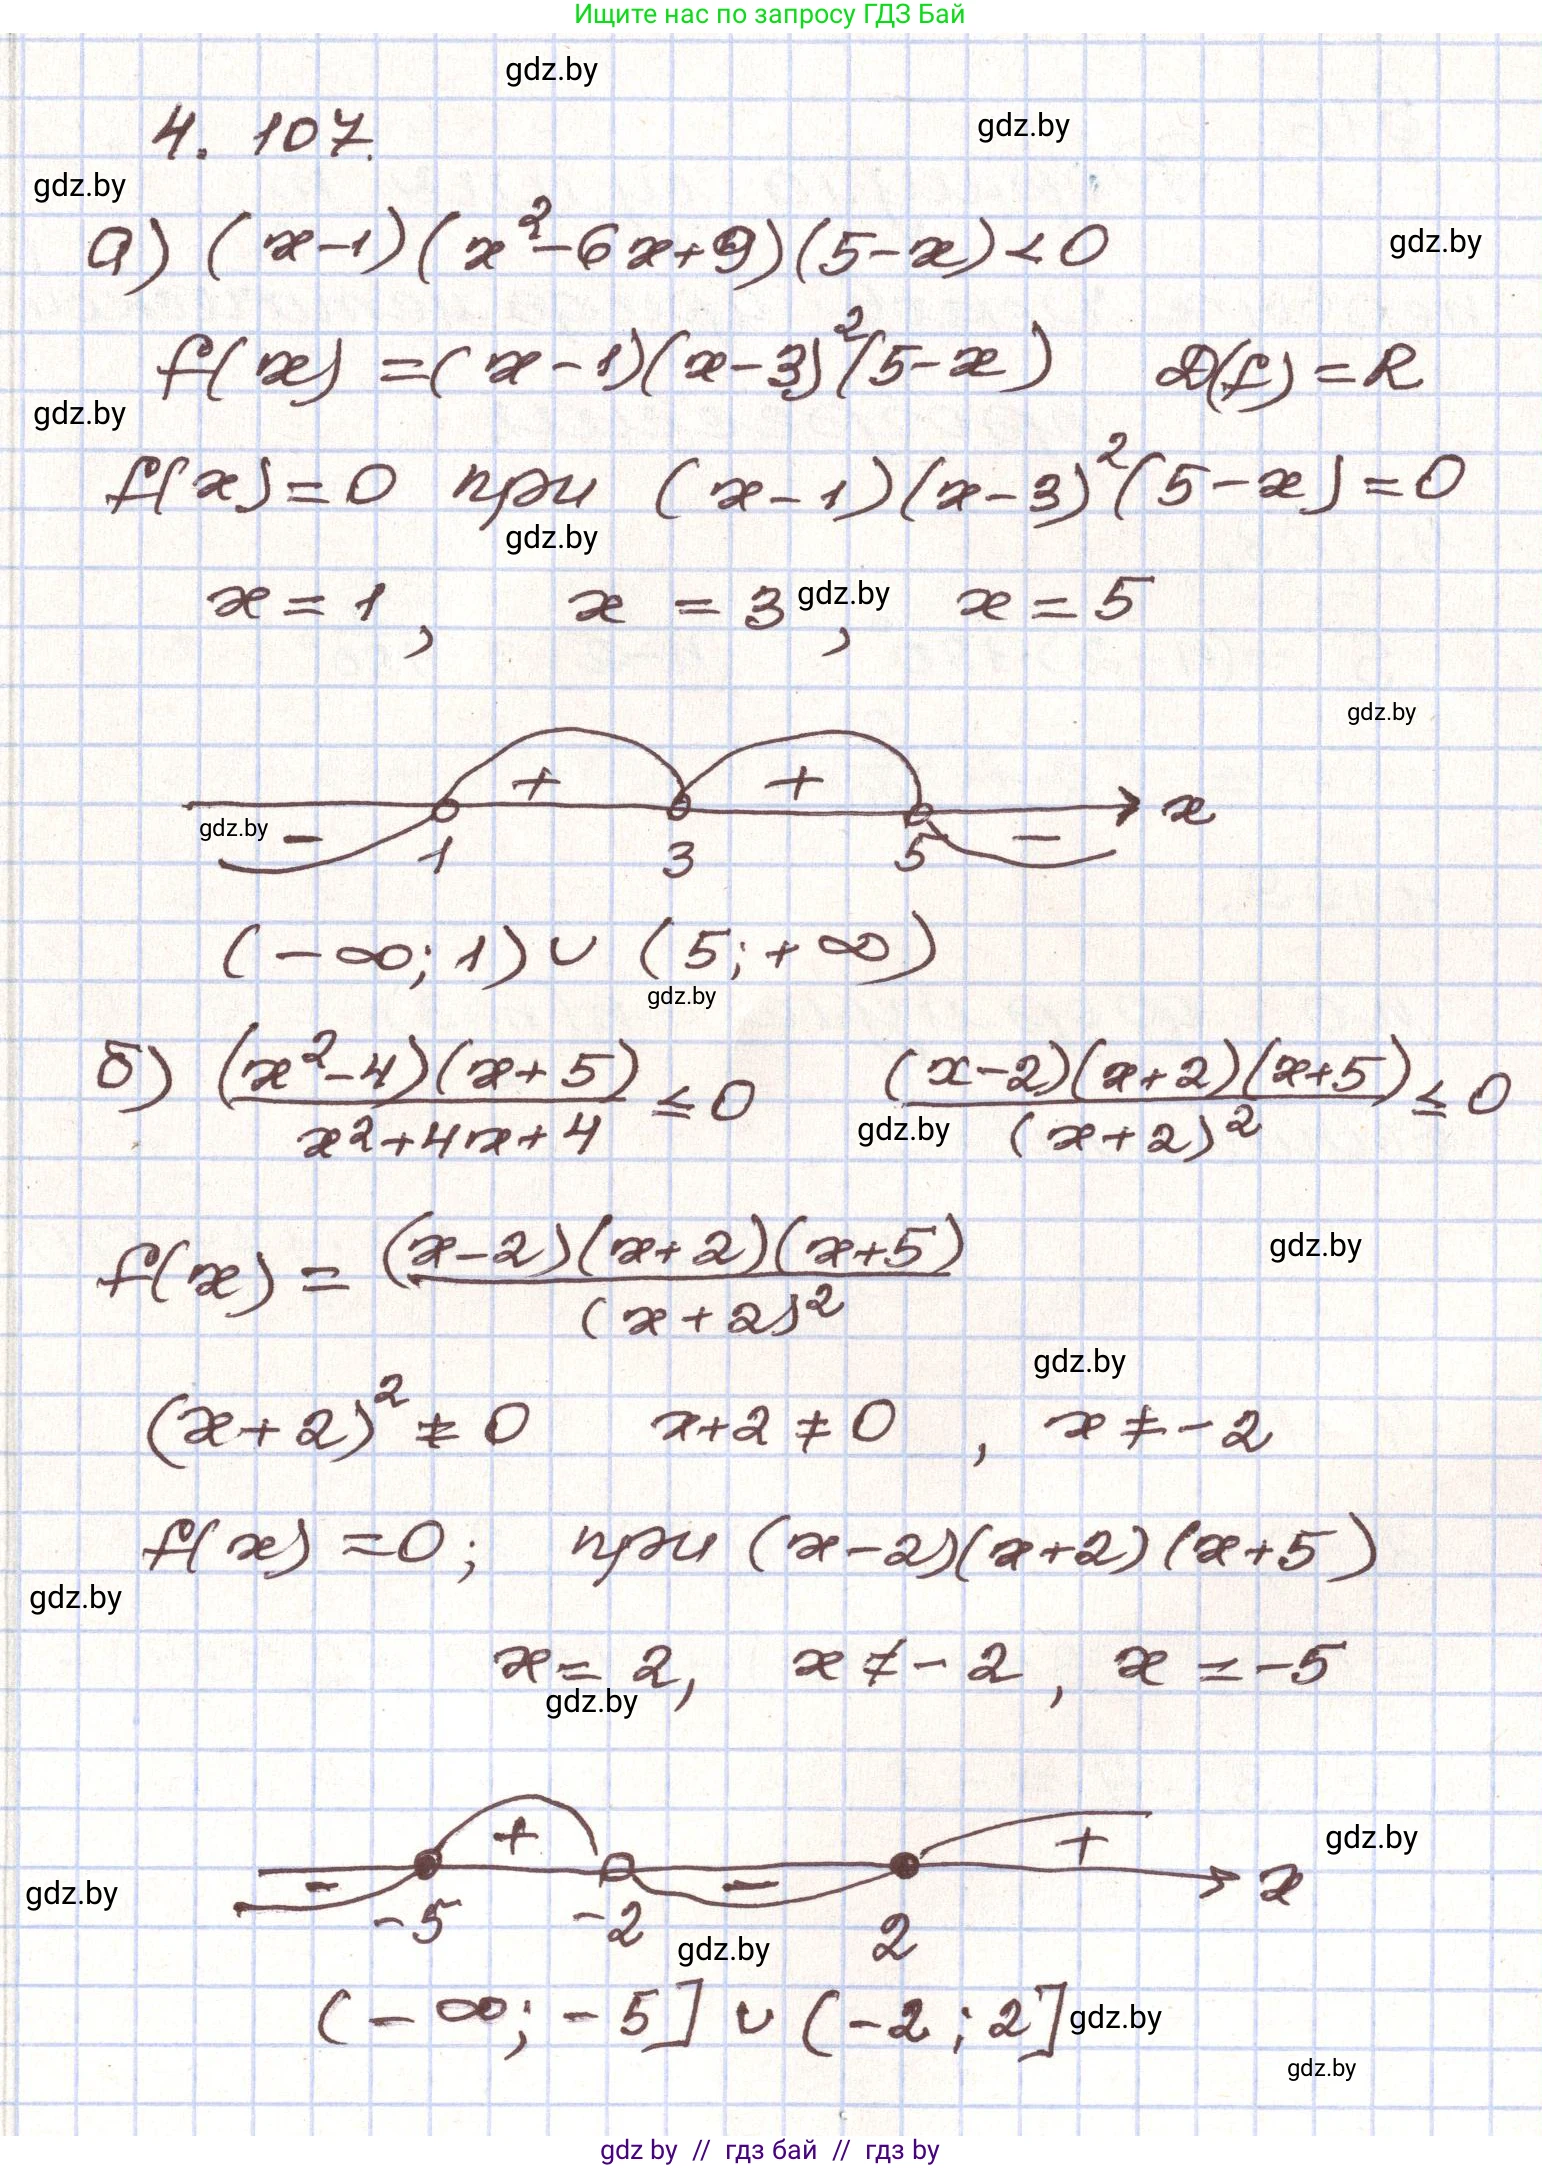 Ищите нас по запросу ГДЗ Бай
gdz.by
4. 107.
gdz.by
gdz.by
а) (x-1)(x²-6x+9)(5-x)<0
gdz.by
f(x) =(x-1)(x-3)²(5-x) D(f)=R
gdz.by
f(x)=0 при (x-1)(x-3)²(5-x)=0
gdz.by
x=1, x=3, x=5
gdz.by
gdz.by
+ + x
gdz.by - 1 3 5 -
(-∞; 1) ∪ (5; +∞)
gdz.by
б) (x²-4)(x+5)/(x²+4x+4) ≤ 0 (x-2)(x+2)(x+5)/(x+2)² ≤ 0
gdz.by
f(x) = (x-2)(x+2)(x+5)/(x+2)²
gdz.by
gdz.by
(x+2)² ≠ 0 x+2 ≠ 0 , x ≠ -2
f(x) =0; при (x-2)(x+2)(x+5)
gdz.by
x= 2, x ≠ -2, x = -5
gdz.by
+ + gdz.by
gdz.by - -5 -2 - 2 x
gdz.by
(-∞; -5] ∪ (-2; 2]
gdz.by
gdz.by
gdz by // гдз бай // гдз by